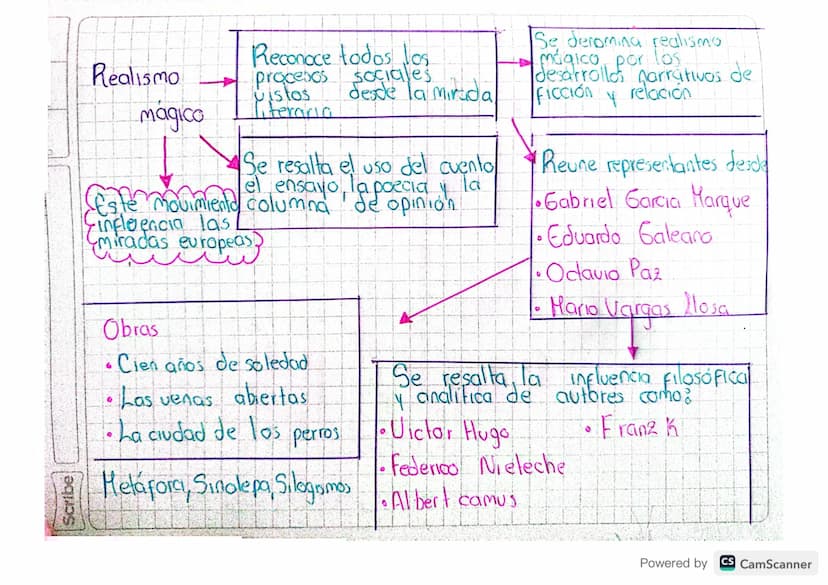 Realismo
mágico
Reconoce todos los
procesos sociales
vistos desde la mirada
literaria
Se denomina realismo
mágico por los
desarrollos narrativos de
ficción y relación
Se resalta el uso del cuento
el ensayo, la poecia y la
columna de opinión
Este movimiento
influencia las
miradas europeas
Reune representantes desde
• Gabriel Garcia Marque
• Eduardo Galeano
• Octavio Paz
• Mario Vargas llosa
Obras
• Cien años de soledad
• Las venas abiertas
• La ciudad de los perros
Metáfora, Sinolepa, Silogismos
Se resalta la influencia filosófica
y analítica de autores como?
• Victor Hugo
• Franz K
• Federico Nieleche
• Albert camus
Scribe
Powered by CS CamScanner